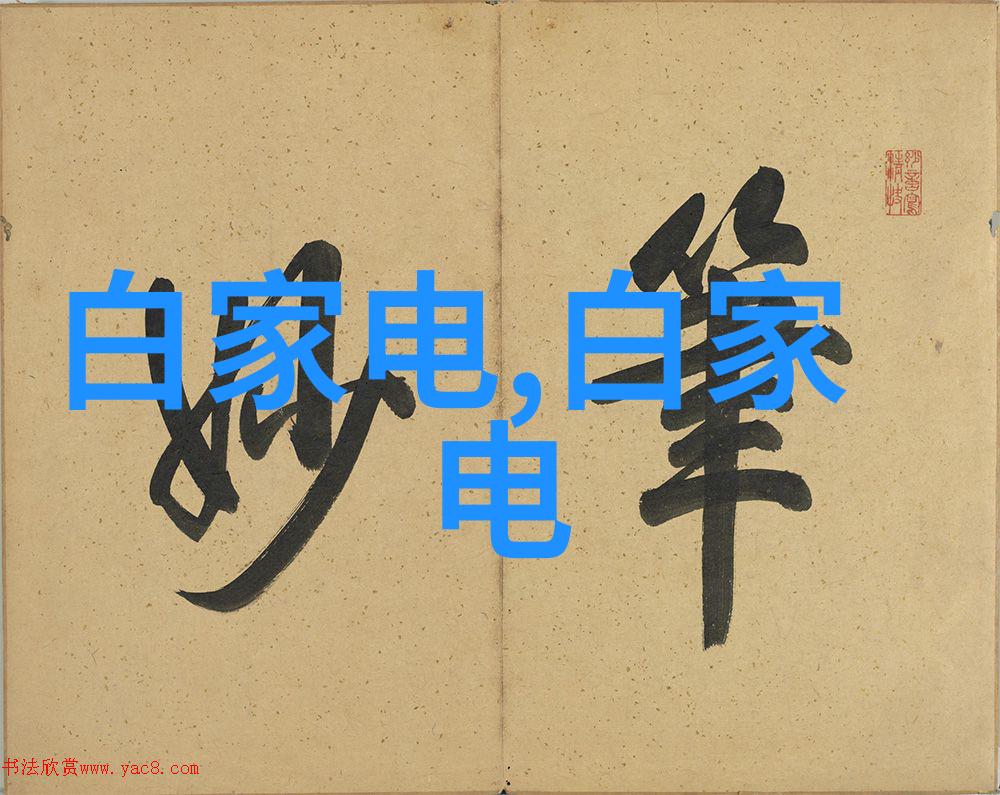 筆妙
白家电,白家
电
书法欣赏www.yac8.com